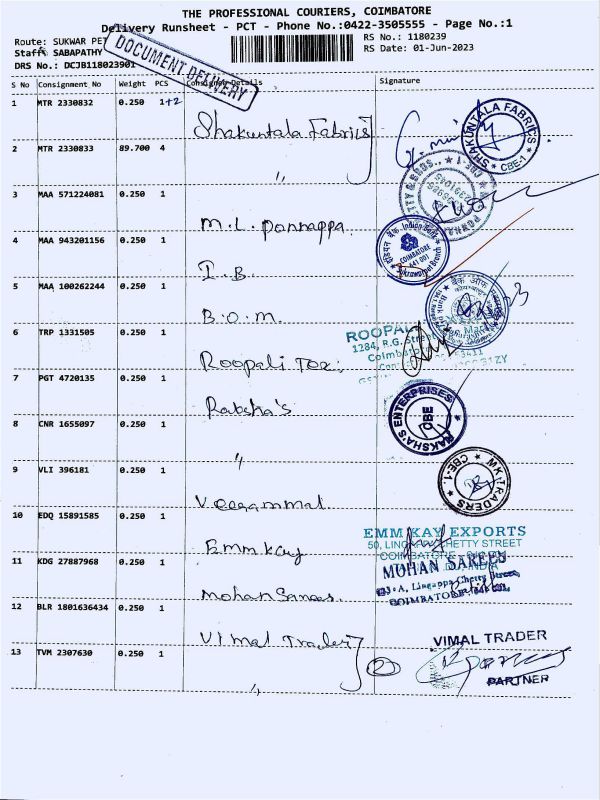 THE PROFESSIONAL COURIERS, COIMBATORE
Delivery Runsheet - PCT - Phone No.:0422-3505555 - Page No.:1
Route: SUKWAR PET
RS No.: 1180239
Staff: SABAPATHY
RS Date: 01-Jun-2023
DRS No.: DCJB118023901
DOCUMENT DELIVERY
S No Consignment No Weight PCS Consignee Details Signature
1 MTR 2330832 0.250 1+2 Shakuntala Fabrics
SHAKUNTALA FABRICS CBE-1
2 MTR 2330833 89.700 4 "
3 MAA 571224081 0.250 1 M.L. Ponnappa
4 MAA 943201156 0.250 1 I.B.
Indian Bank
COIMBATORE
641 001
5 MAA 100262244 0.250 1 B.O.M.
6 TRP 1331505 0.250 1 Roopali Tex:
1284, R.G. Street
7 PGT 4720135 0.250 1 Raksha's
RAKSHA'S ENTERPRISES CBE
8 CNR 1655097 0.250 1 "
9 VLI 396181 0.250 1 Veegammal
MK TRADERS CBE-1.
10 EDQ 15891585 0.250 1 Emm Kay
EMM KAY EXPORTS
11 KDG 27887968 0.250 1 Mohan Sarees
MOHAN SAREES
12 BLR 1801636434 0.250 1 Vimal Trader
VIMAL TRADER
13 TVM 2307630 0.250 1 " 2
PARTNER